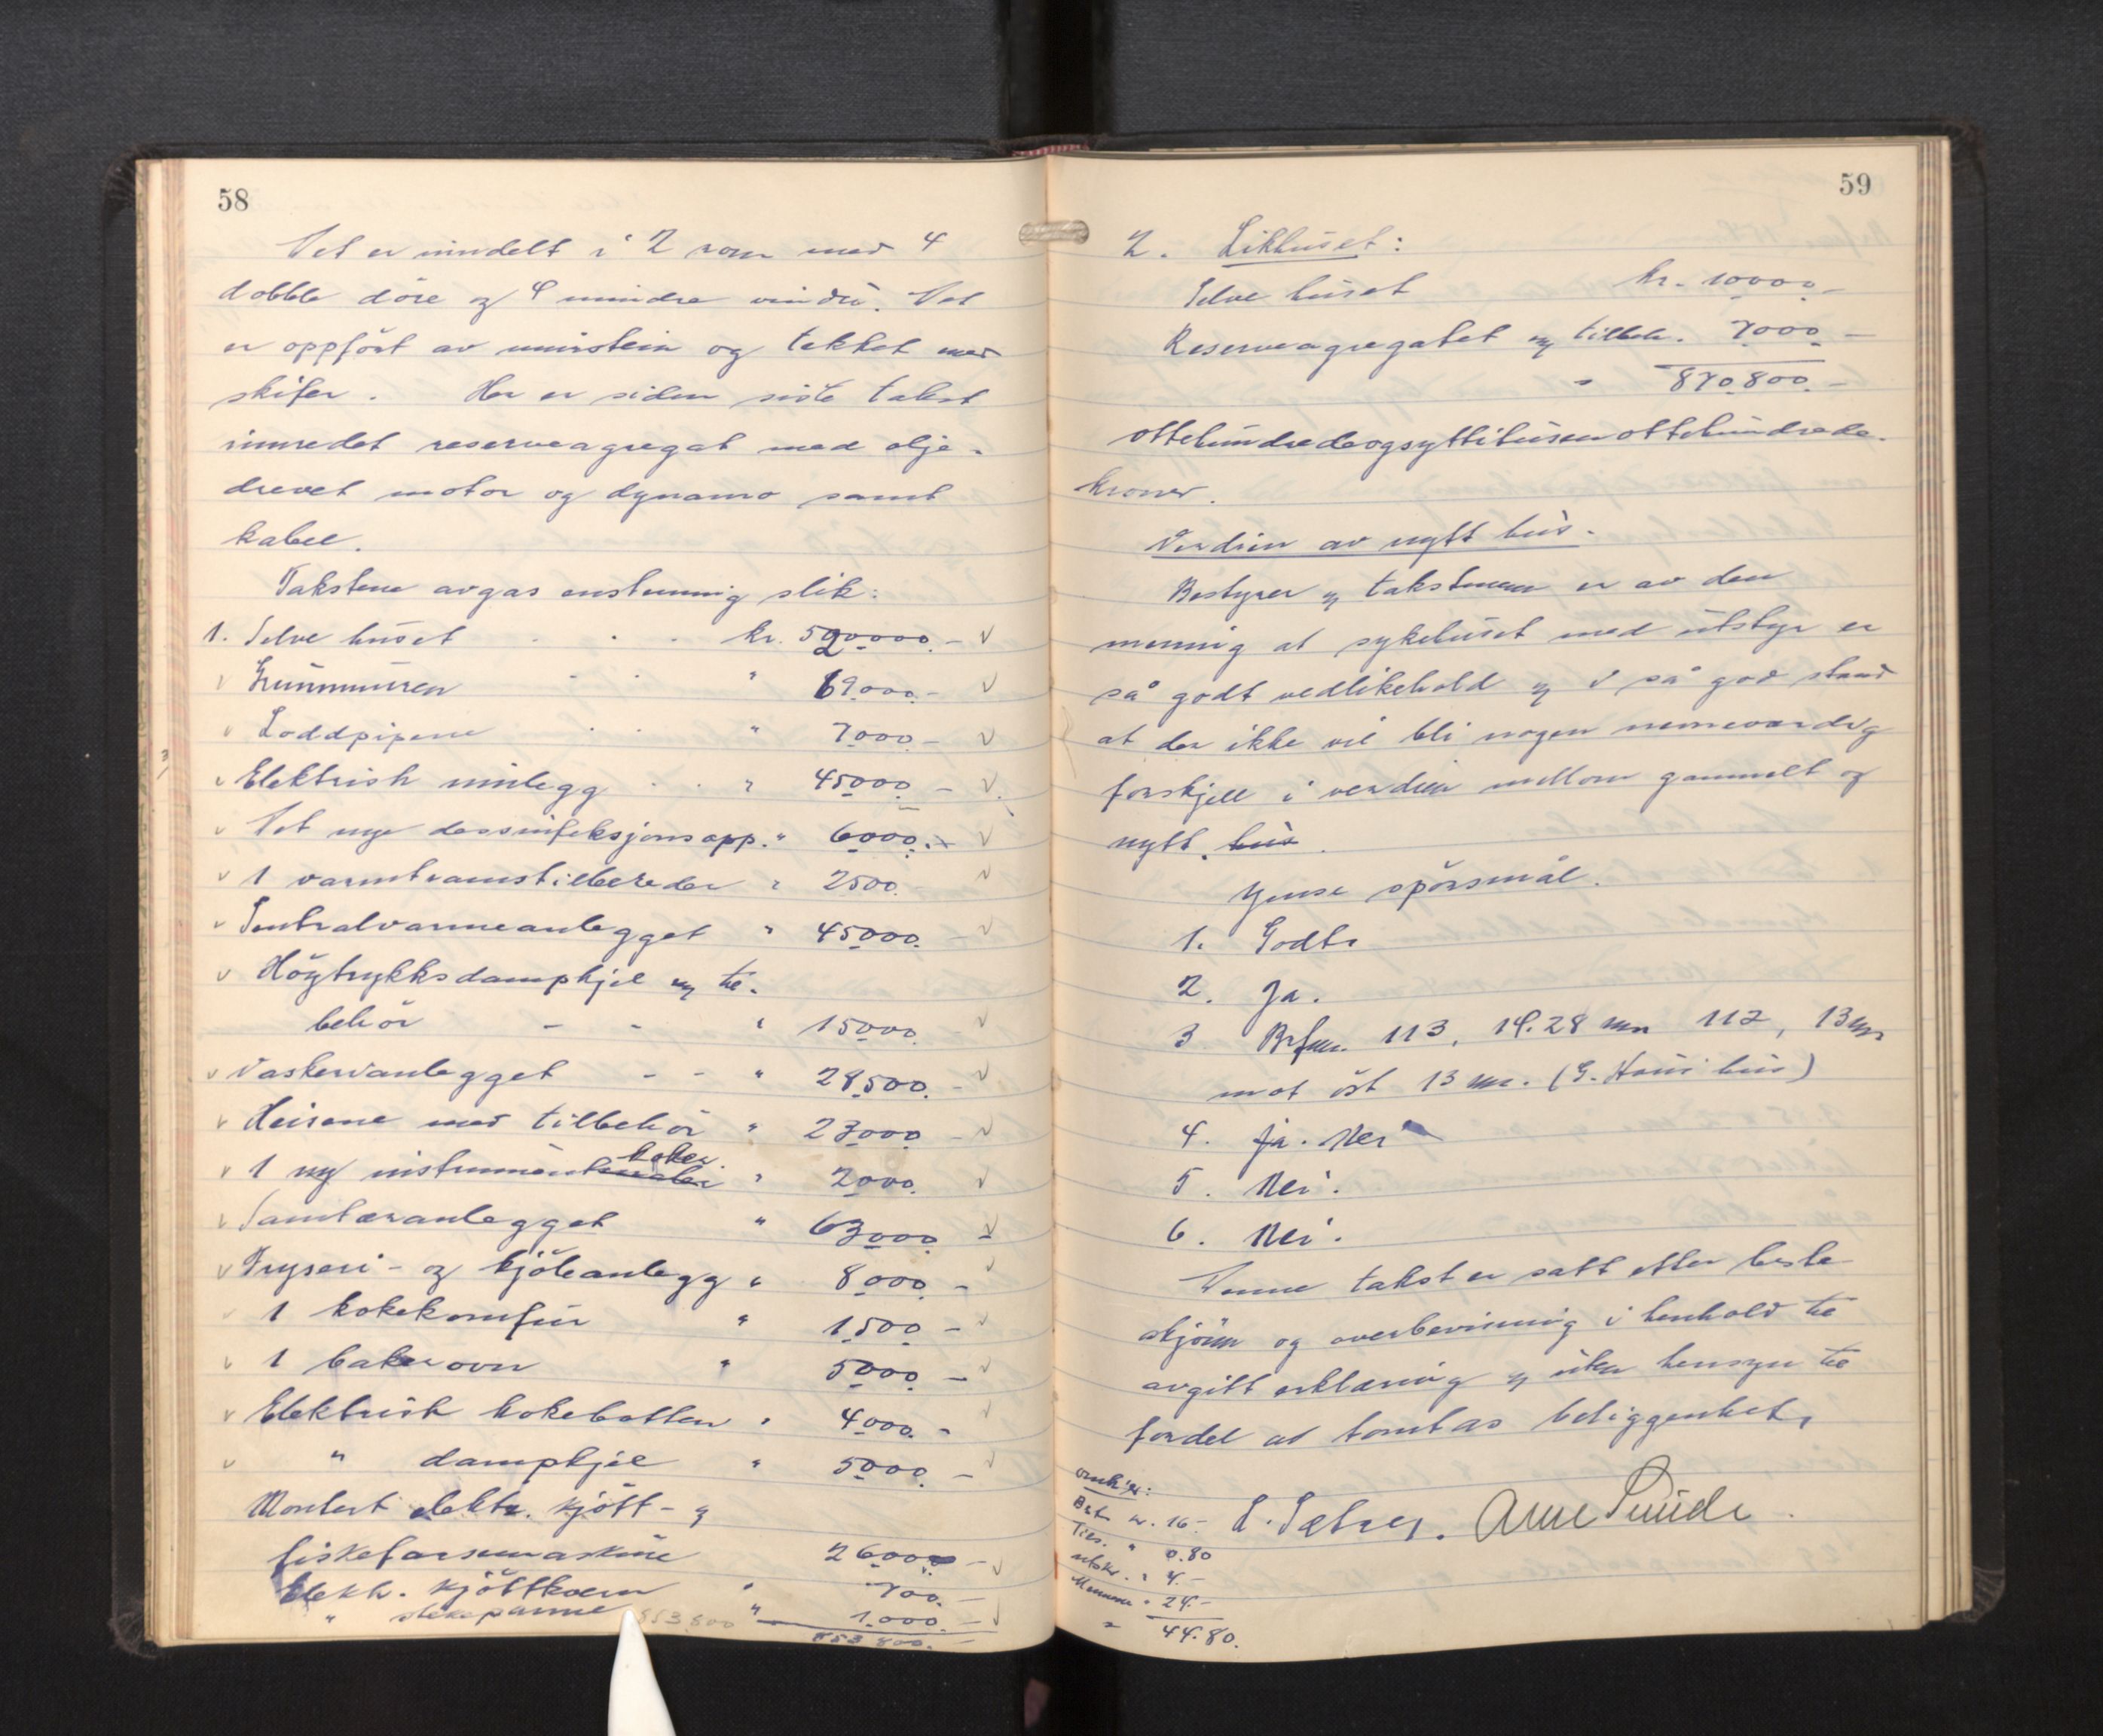 58
Det er inndelt i 2 rom med 4
dobble döre og 4 mindre vindu. Det
er oppfört av murstein og tekket med
skifer. Her er siden siste takst
innredet reserveagregat med olje-
drevet motor og dynamo samt
kabel.
Takstene avgas enstemmig slik:
1. Selve huset kr. 520000.-
Grunnmuren " 69000.-
Loddpipene " 7000.-
Elektrisk innlegg " 45000.-
Det nye dessinfeksjonsapp. " 6000.-
1 varmtvanstilbereder " 2500.
Sentralvarmeanlegget " 45000.-
Högtrykksdampkjel og til-
behör " 15000.-
Vaskerianlegget " 28500.-
Heisene med tilbehör " 23000.-
1 ny instrumentkoker " 2000.
Sanitæranlegget " 63000.-
Fryseri- og kjöleanlegg " 8000.-
1 kokekomfur " 1500.-
1 bakerovn " 5000.-
Elektrisk kokebatteri " 4000.-
" dampkjel " 5000.-
Montert elektr. kjött- og
fiskefarsemaskine 2600.-
Elekh. kjöttkvern " 700.-
" stekepanne 853800 " 1.000.-
853 800.-
59
2. Likhuset:
Selve huset kr. 10000.-
Reserveagregatet og tilbeh. 7000.-
" 870.800.-
ottehundredeogsyttitusenottehundrede-
kroner.
Verdien av nytt hus.
Bestyrer og takstmenn er av den
mening at sykehuset med utstyr er
så godt vedlikehold og i så god stand
at der ikke vil bli nogen nemneverdig
forskjell i verdien mellom gammelt og
nytt. hus.
Ymse spörsmål.
1. Godt.
2. Ja.
3 Brfnr. 113, 14.28 mn 112, 13 m
mot öst 13 m. (G. Hauis hus)
4. ja. Nei
5. Nei.
6. Nei.
Denne takst er satt etter beste
skjönn og overbevisning i henhold til
avgitt erklæring og uten hensyn til
fordel at tomtas beliggenhet.
omk.:
Best. kr. 16.- L. Sætrey. Arne Sunde.
" 0.80
utskr. " 4.-
Mennene " 24.-
" 44.80.